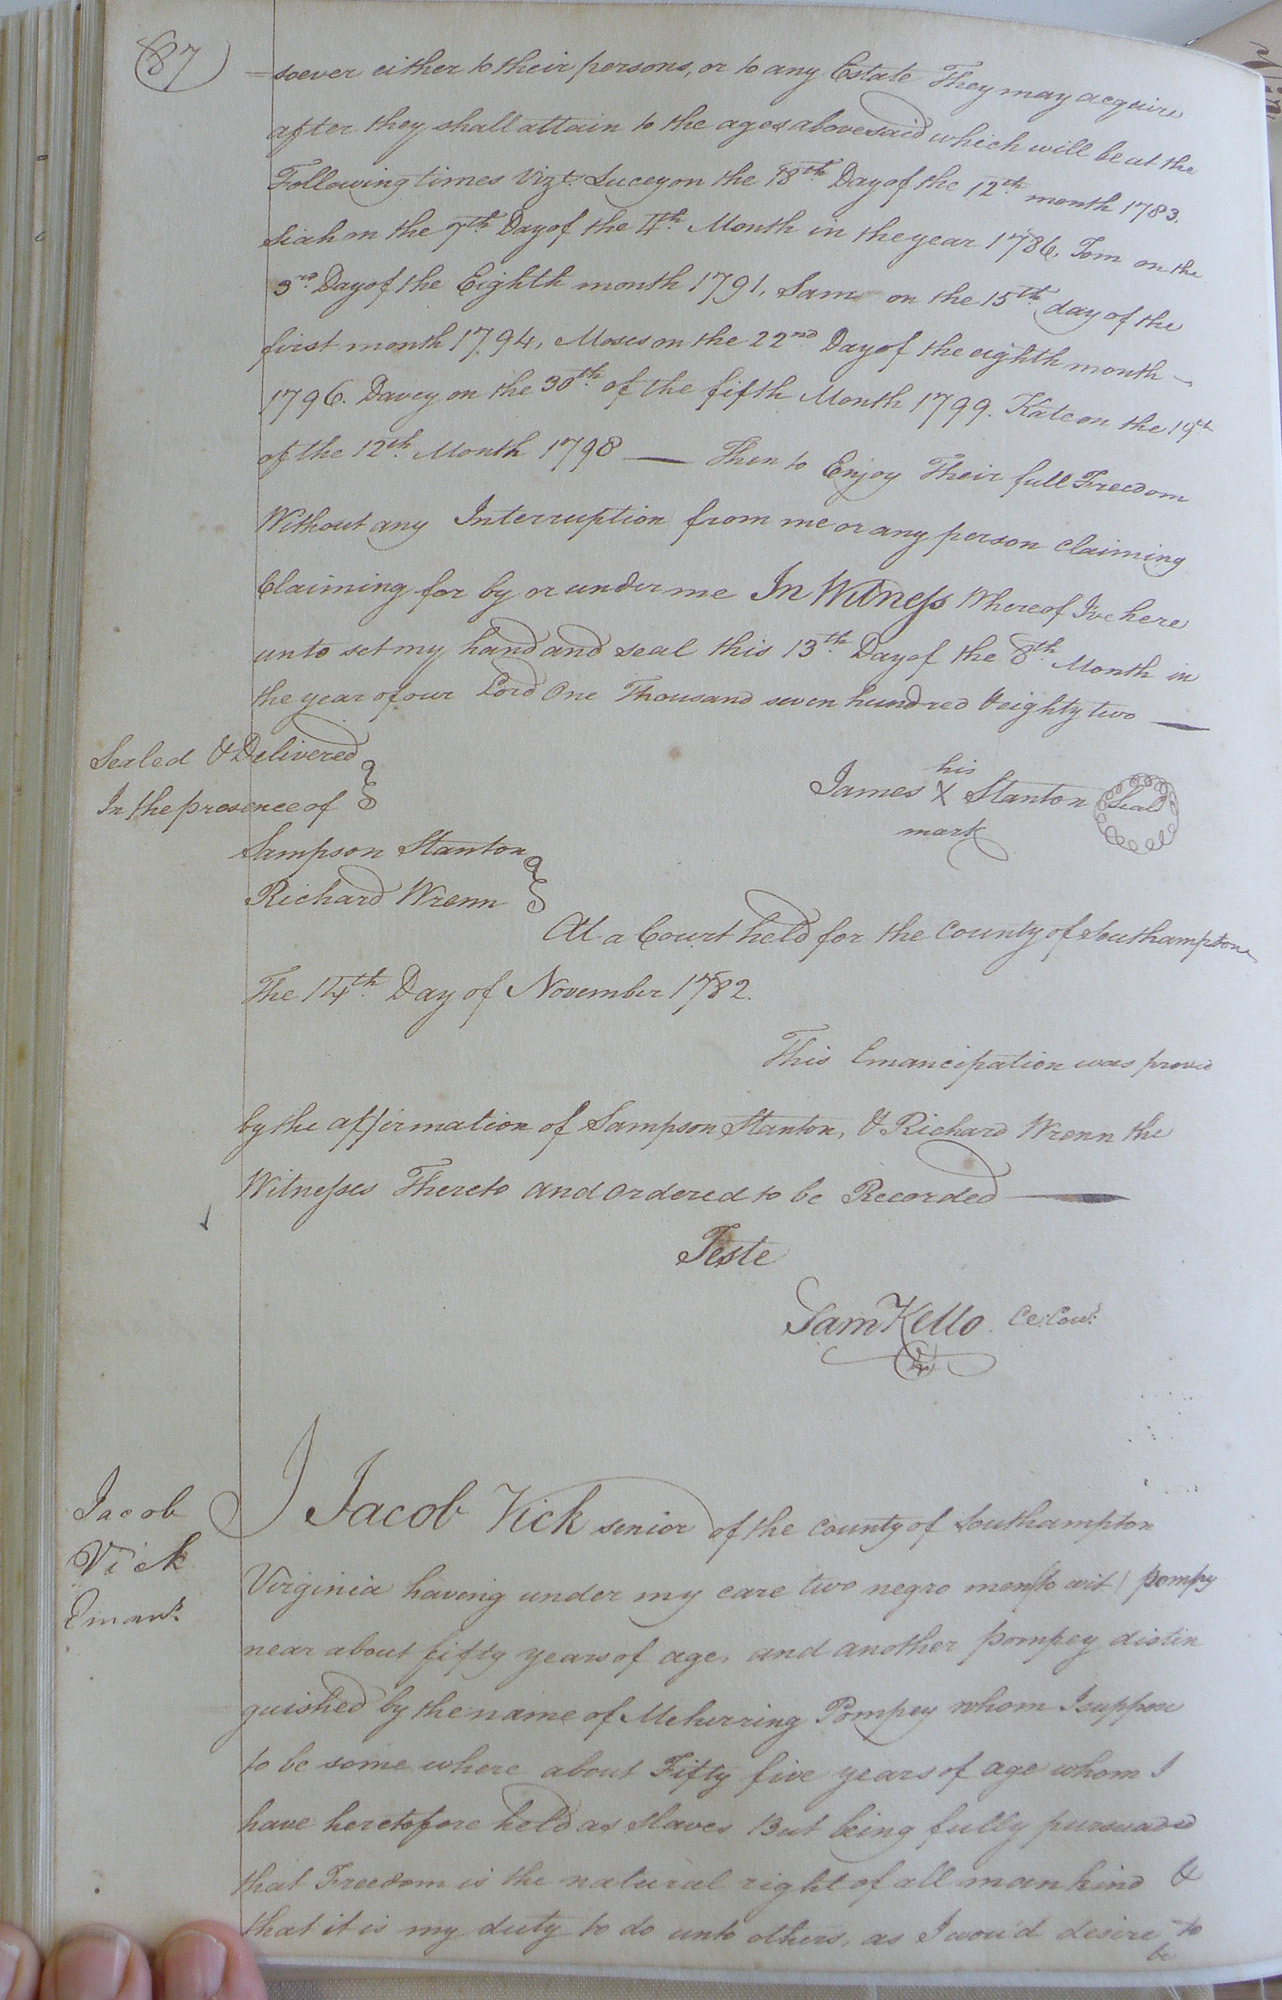 87
soever either to their persons, or to any Estate They may acquire
after they shall attain to the ages abovesaid which will be at the
Following times Vizt. Lucey on the 18th Day of the 12th month 1783.
Siah on the 7th Day of the 4th Month in the year 1786, Tom on the
3rd Day of the Eighth month 1791, Sam on the 15th day of the
first month 1794, Moses on the 22nd Day of the eighth month
1796. Davey on the 30th of the fifth Month 1799. Kate on the 19th
of the 12th Month 1798 — Then to Enjoy Their full Freedom
Without any Interruption from me or any person Claiming
Claiming for by or under me In Witness Whereof I've here
unto set my hand and seal this 13th Day of the 8th Month in
the year of our Lord One Thousand seven hundred & eighty two —
Sealed & Delivered
In the presence of
his
James X Stanton Seal
mark
Sampson Stanton
Richard Wrenn
At a Court held for the County of Southampton
The 14th Day of November 1782.
This Emancipation was provd
by the affirmation of Sampson Stanton, & Richard Wrenn the
Witnesses Thereto and ordered to be Recorded —
Teste
Sam Kello Ce: Cour:
Jacob
Vick
Eman:
I Jacob Vick senior of the County of Southampton
Virginia having under my care two negro men (to wit) pompy
near about fifty years of age, and another pompey distin
guished by the name of Meherring Pompey whom I suppose
to be some where about Fifty five years of age whom I
have heretofore held as Slaves But being fully pursuaded
that Freedom is the natural right of all mankind &
that it is my duty to do unto others, as I wou'd desire to
be